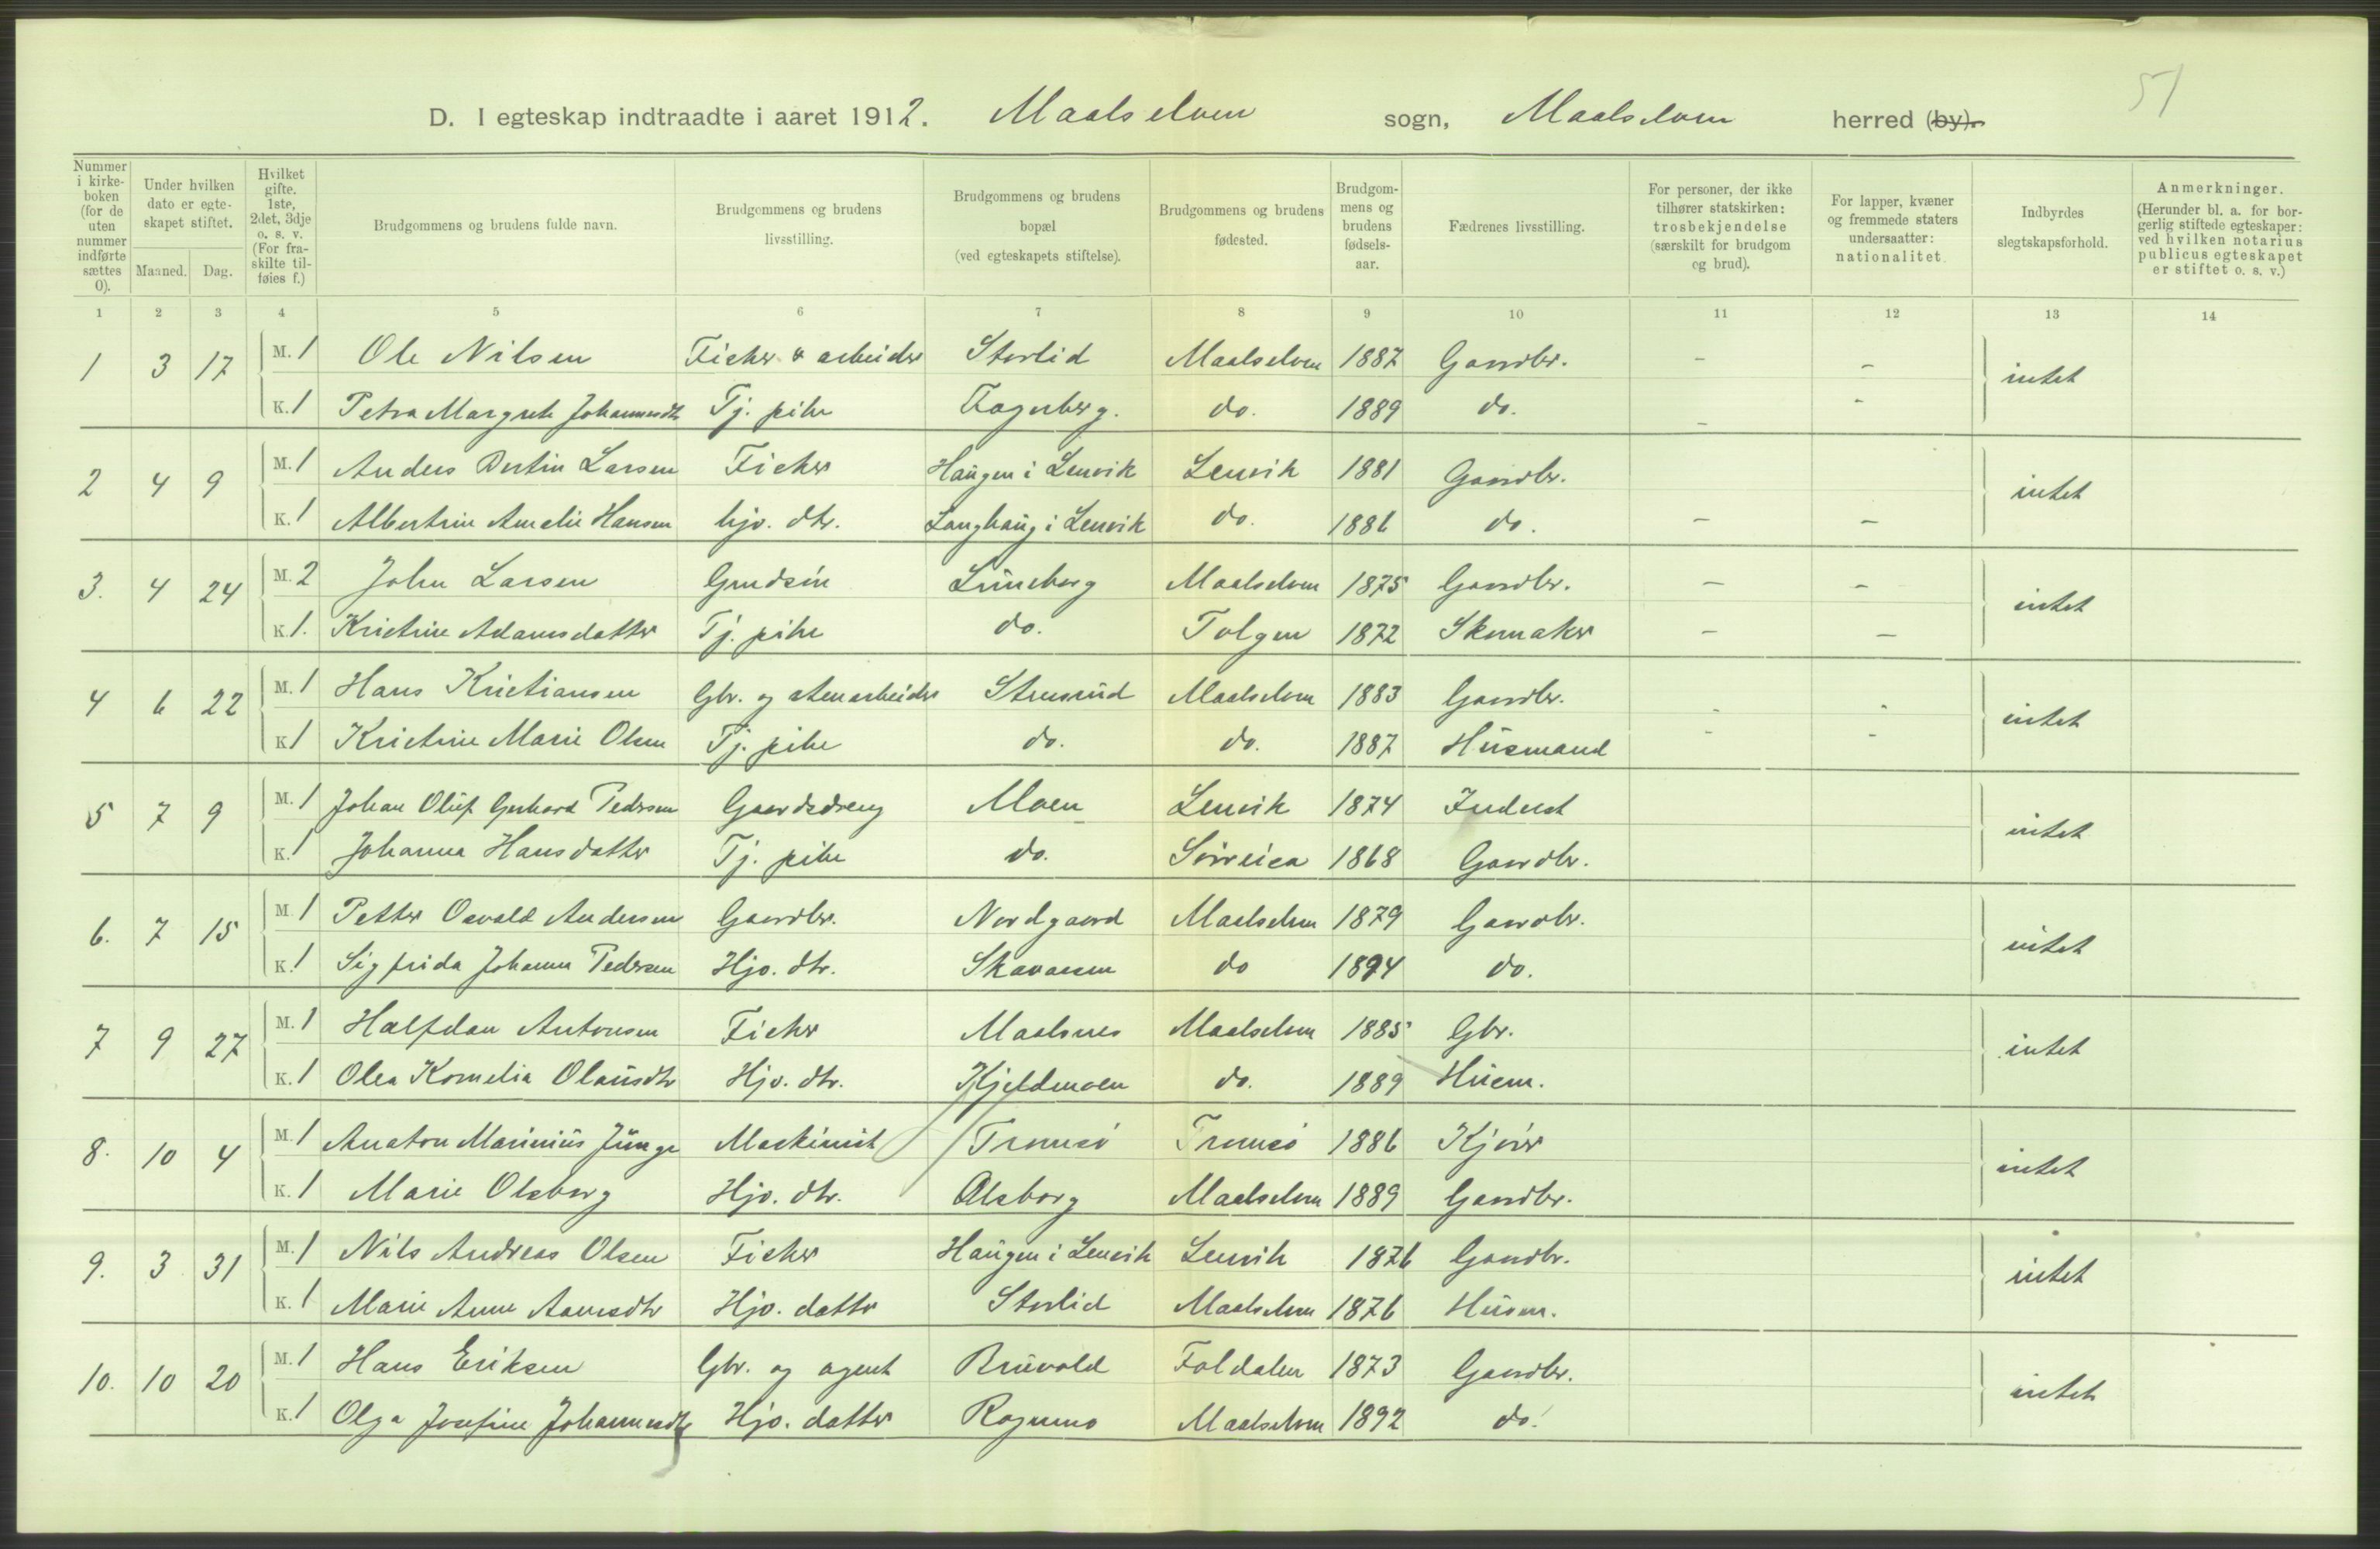 51
D. I egteskap indtraadte i aaret 1912. Maalselven sogn, Maalselven herred (by).
Nummer i kirkeboken (for de uten nummer indførte sættes 0).
Under hvilken dato er egteskapet stiftet.
Maaned. Dag.
Hvilket gifte. 1ste, 2det, 3dje o. s. v. (For fraskilte tilføies f.)
Brudgommens og brudens fulde navn.
Brudgommens og brudens livsstilling.
Brudgommens og brudens bopæl (ved egteskapets stiftelse).
Brudgommens og brudens fødested.
Brudgommens og brudens fødselsaar.
Fædrenes livsstilling.
For personer, der ikke tilhører statskirken: trosbekjendelse (særskilt for brudgom og brud).
For lapper, kvæner og fremmede staters undersaatter: nationalitet
Indbyrdes slegtskapsforhold.
Anmerkninger. (Herunder bl. a. for borgerlig stiftede egteskaper: ved hvilken notarius publicus egteskapet er stiftet o. s. v.)
1 2 3 4 5 6 7 8 9 10 11 12 13 14
1 3 17 M. 1 Ole Nilsen Fisker & arbeider Storlid Maalselven 1887 Gaardbr. - - intet
K. 1 Petra Margrete Johannesdtr Tj. pike Fagerberg. do. 1889 do. - -
2 4 9 M. 1 Anders Bertin Larsen Fisker Haugen i Lenvik Lenvik 1881 Gaardbr. intet
K. 1 Albertine Amelie Hansen hjv. dtr. Langhaug i Lenvik do. 1886 do. - -
3. 4 24 M. 2 John Larsen Grudsin Lüneborg Maalselven 1875 Gaardbr. - - intet
K. 1. Kristine Adamsdatter Tj. pike do. Tolgen 1872 Skomaker - -
4 6 22 M. 1 Hans Kristiansen Gbr. og stenarbeider Stensrud Maalselven 1883 Gaardbr. - - intet
K 1 Kristine Marie Olsen Tj. pike do. do. 1887 Husmand - -
5 7 9 M. 1 Johan Oluf Gerhard Pedersen Gaardsdreng Moen Lenvik 1874 Inderst intet
K. 1 Johanna Hansdatter Tj. pike do. Sörreisa 1868 Gaardbr.
6. 7 15 M 1 Petter Osvald Andersen Gaardbr. Nordgaard Maalselven 1879 Gaardbr. intet
K. 1 Sigfrida Johanne Pedersen Hjv. dtr. Skavaasen do 1894 do.
7 9 27 M. 1 Halfdan Antonsen Fisker Maalsnes Maalselven 1885 Gbr. intet
K. 1 Olea Kornelia Olausdtr Hjv. dtr. Kjeldmoen do. 1889 Husm.
8. 10 4 M. 1 Anaton Marinius Junge Maskinist Tromsö Tromsö 1886 Kjörer intet
K. 1 Marie Olsborg Hjv. dtr. Olsborg Maalselven 1889 Gaardbr.
9. 3 31 M. 1 Nils Andreas Olsen Fisker Haugen i Lenvik Lenvik 1876 Gaardbr. intet
K. 1 Marie Anne Aanesdtr Hjv. datter Storlid Maalselven 1876 Husm.
10. 10 20 M. 1 Hans Eriksen Gbr. og agent Bruvold Foldalen 1873 Gaardbr. intet
K. 1 Olga Josefine Johannesdtr Hjv. datter Rognmo Maalselven 1892 do.